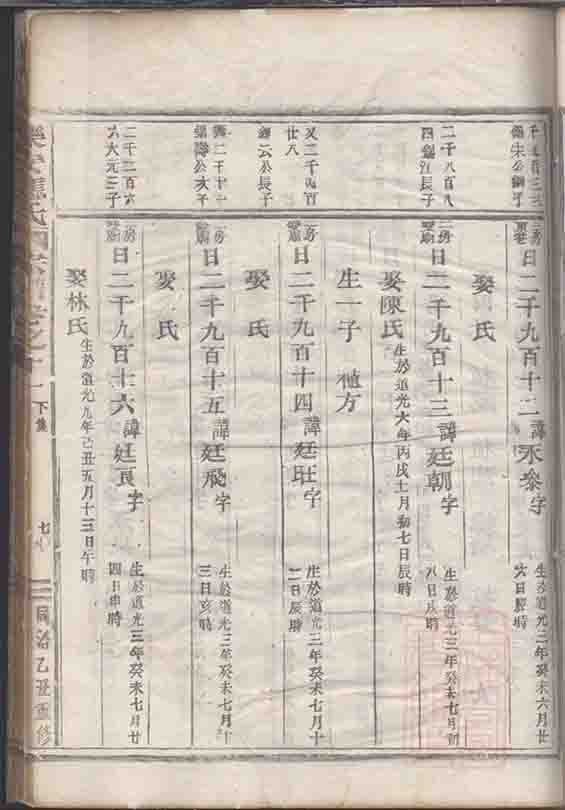 房
日二千九百十二諱永黎字
生於道光三年癸未六月廿
六日辰時
娶 氏
二千八百八
四 江長子
二房
日二千九百十三諱廷朝字
生於道光三年癸未七月初
八日戌時
娶陳氏
生於道光六年丙戌十月初七日辰時
生一子 植方
又二千八百
廿八
云公長子
二房
日二千九百十四諱廷旺字
生於道光三年癸未七月十
二日辰時
娶 氏
公次子
二房
日二千九百十五諱廷飛字
生於道光三年癸未七月十
三日亥時
娶 氏
六大元三子
二房
日二千九百十六諱廷良字
生於道光三年癸未七月廿
四日申時
娶林氏
生於道光九年己丑五月十三日午時
下集
七
同治乙丑重修